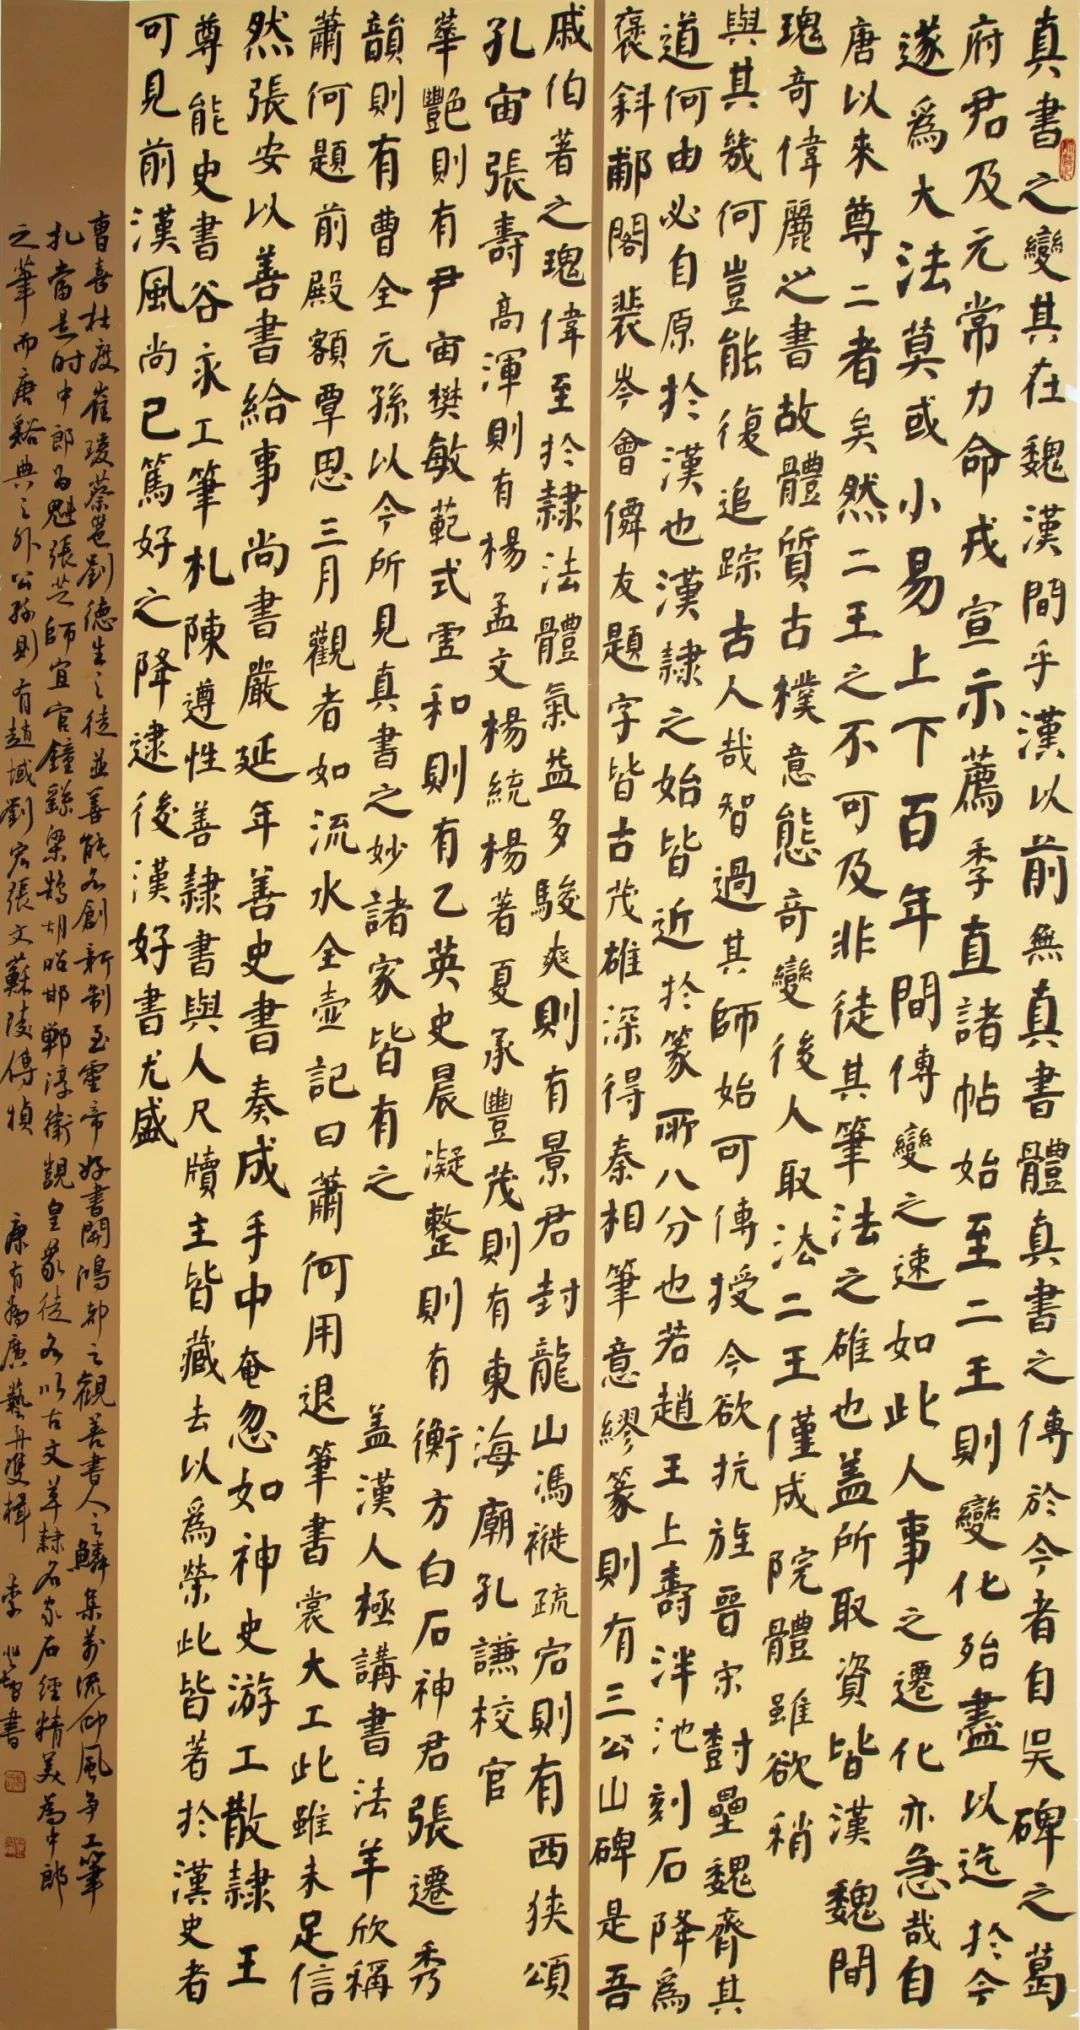 真書之變其在魏漢間乎漢以前無真書體真書之傳於今者自吳碑之葛
府君及元常力命戎宣示薦季直諸帖始至二王則變化殆盡以迄於今
遂為大法莫或小易上下百年間傳變之速如此人事之遷化亦急哉自
唐以來尊二者矣然二王之不可及非徒其筆法之雄也蓋所取資皆漢魏間
瑰奇偉麗之書故體質古樸意態奇變後人取法二王僅成院體雖欲稍
與其幾何豈能復追踪古人哉智過其師始可傳授今欲抗旌晉宋對壘魏齊其
道何由必自原於漢也漢隸之始皆近於篆所八分也若趙王上壽泮池刻石降為
褒斜郙閣裴岑會僯友題字皆古茂雄深得秦相筆意繆篆則有三公山碑是吾
戚伯著之瑰偉至於隸法體氣益多駿爽則有景君封龍山馮褷疏宕則有西狹頌
孔宙張壽高渾則有楊孟文楊統楊著夏承豐茂則有東海廟孔謙校官
華艷則有尹宙樊敏範式虛和則有乙英史晨凝整則有衡方白石神君張遷秀
韻則有曹全元孫以今所見真書之妙諸家皆有之蓋漢人極講書法羊欣稱
蕭何題前殿額覃思三月觀者如流水全壺記曰蕭何用退筆書裳大工此雖未足信
然張安以善書給事尚書嚴延年善史書奏成手中奄忽如神史游工散隸王
尊能史書谷永工筆札陳遵性善隸書與人尺牘主皆藏去以為榮此皆著於漢史者
可見前漢風尚已篤好之降逮後漢好書尤盛
曹喜杜度崔瑗蔡邕劉德生之徒並善能各創新制至靈帝好書開鴻都之觀善書人之鱗集萬流仰風爭工筆
札當是時中郎為魁張芝師宜官鍾繇梁鵠胡昭邯鄲淳衛覬皇象徒各以古文草隸名家石經精美為中郎
之筆而唐谿典之外公孫則有趙域劉宏張文蘇陵傅楨 康有為廣藝舟雙楫 李 書